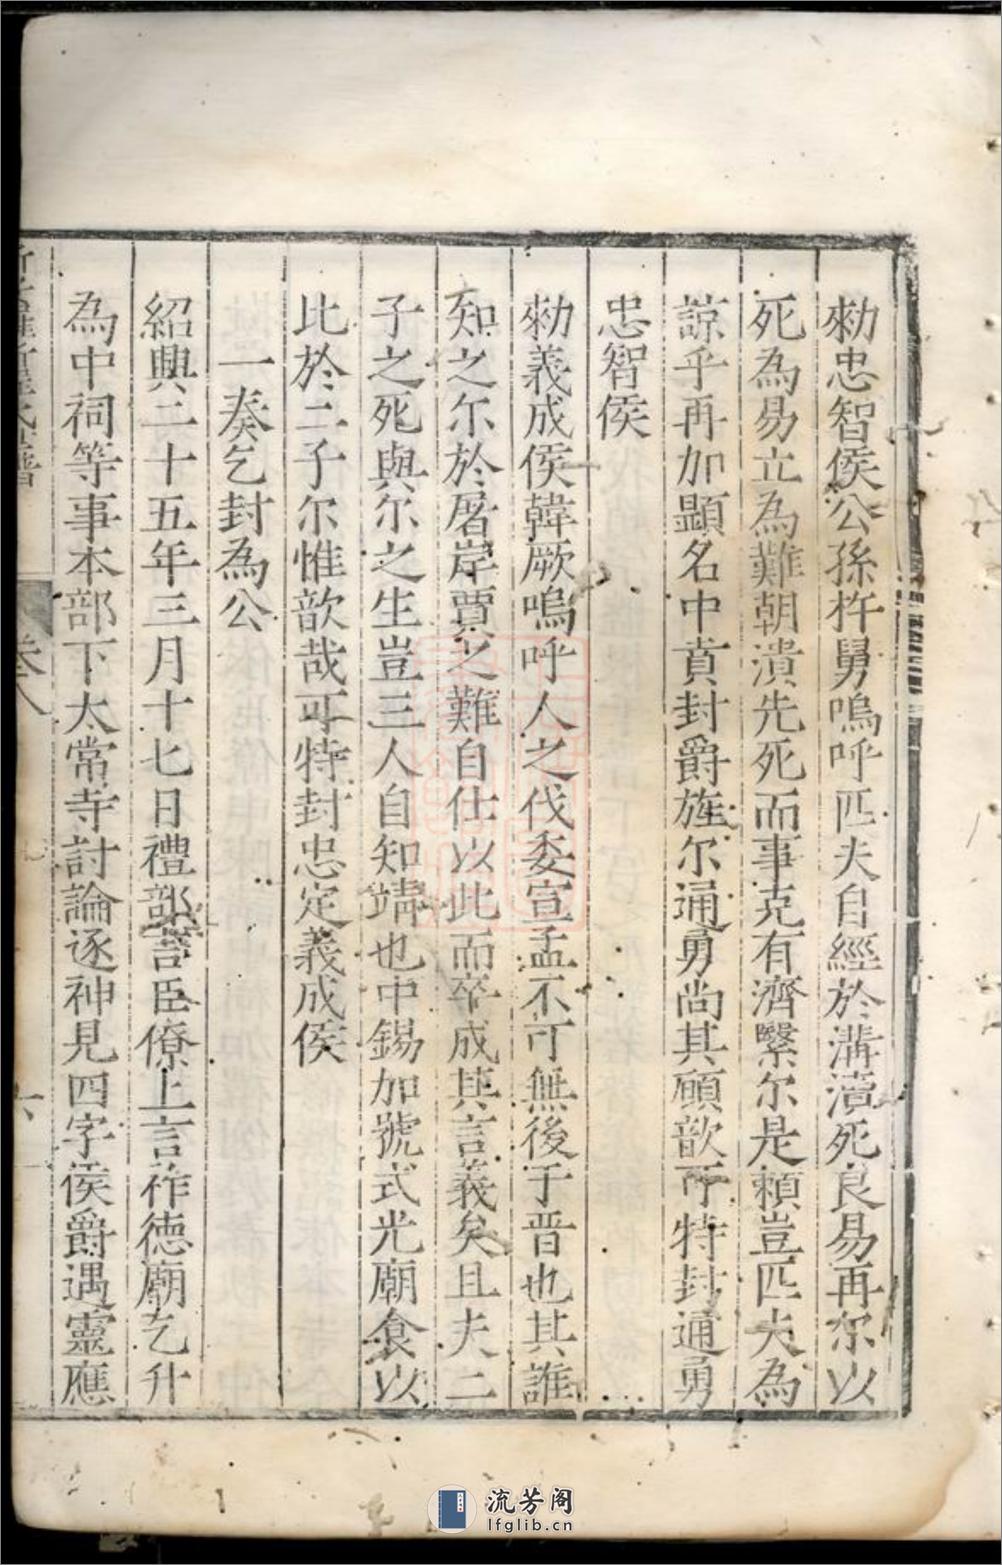 勑忠智侯公孫杵舅嗚呼匹夫自經於溝瀆死良易再尔以
死為易立為難朝潰先死而事克有濟繫尔是頼豈匹夫為
諒乎再加顯名中賁封爵旌尔通勇尚其顧歆可特封通勇
忠智侯
勑義成侯韓厥嗚呼人之伐委宣孟不可無後于晋也其誰
知之尔於屠岸賈之難自仕以此而卒成其言義矣且夫二
子之死與尔之生豈三人自知靖也中錫加號式光廟食以
比於二子尔惟歆哉可特封忠定義成侯
一奏乞封為公
紹興二十五年三月十七日禮部言臣僚上言祚德廟乞升
為中祠等事本部下太常寺討論逐神見四字侯爵遇靈應
卷八
六
流芳阁
lfglib.cn